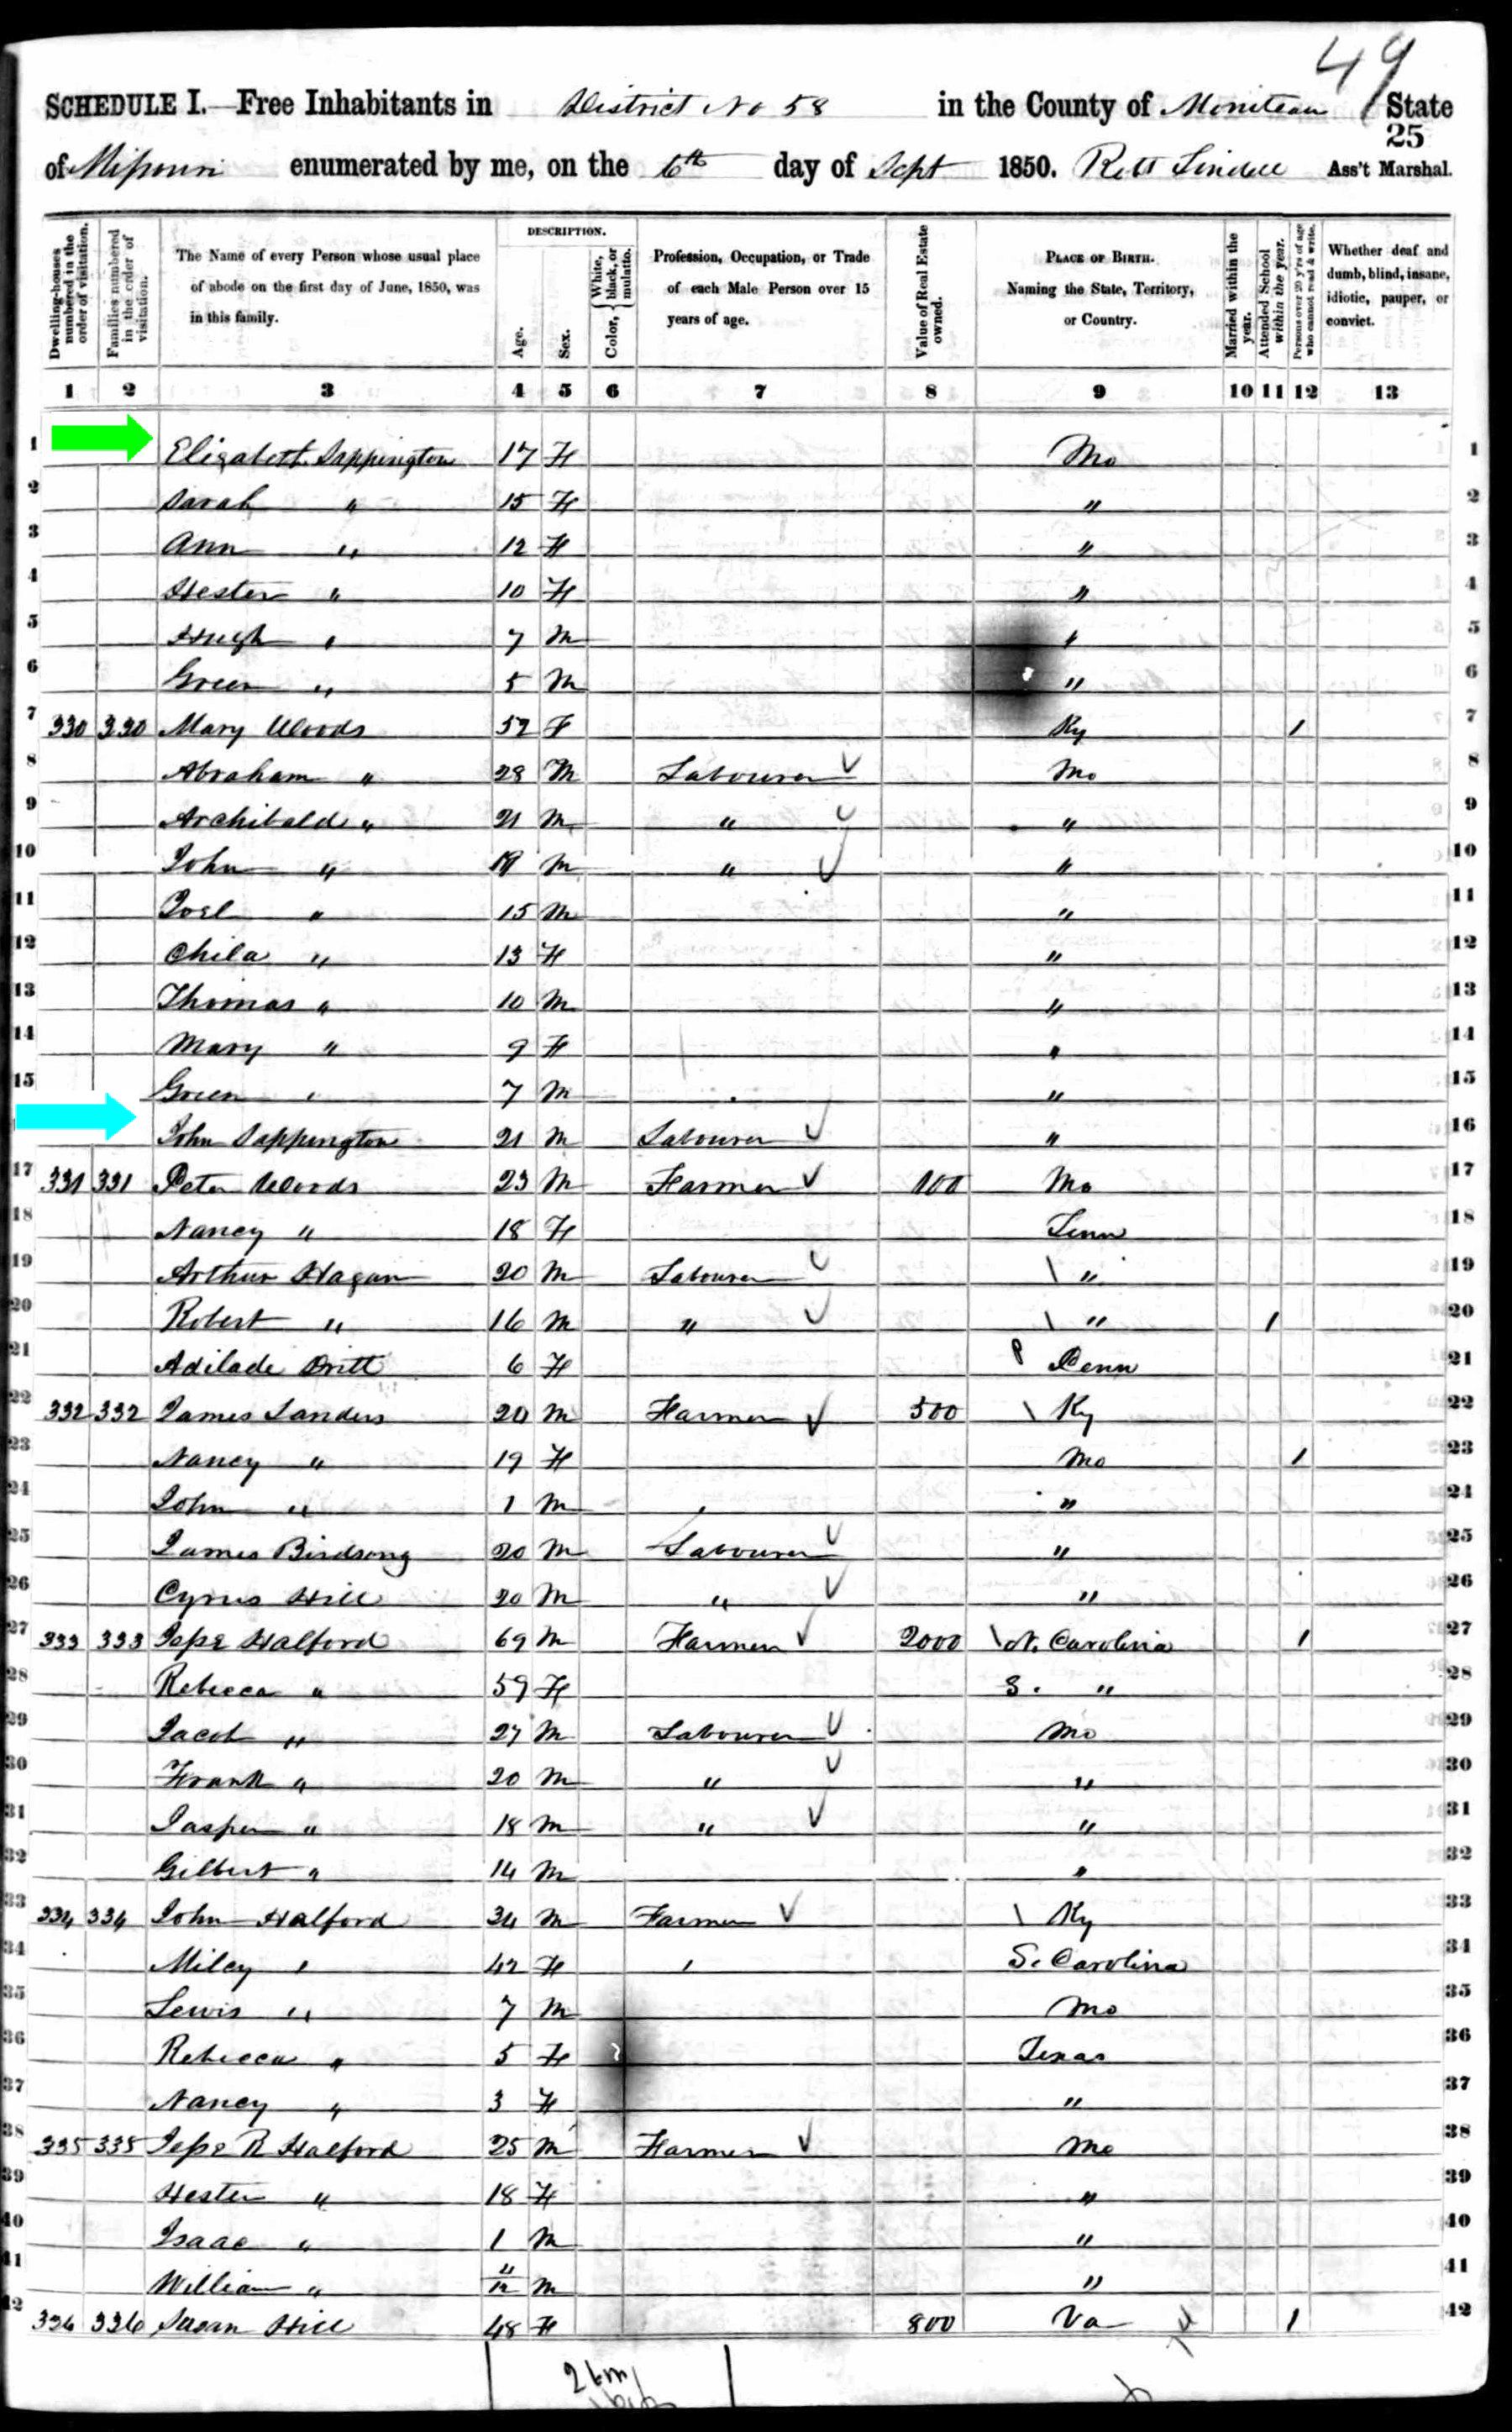 49
SCHEDULE I.—Free Inhabitants in District No 58 in the County of Moniteau State
25
of Missouri enumerated by me, on the 6th day of Sept 1850. Robt Ass't Marshal.
Dwelling-houses numbered in the order of visitation.
Families numbered in the order of visitation.
The Name of every Person whose usual place of abode on the first day of June, 1850, was in this family.
DESCRIPTION.
Age.
Sex.
Color, { White, black, or mulatto.
Profession, Occupation, or Trade of each Male Person over 15 years of age.
Value of Real Estate owned.
PLACE OF BIRTH. Naming the State, Territory, or Country.
Married within the year.
Attended School within the year.
Persons over 20 y'rs of age who cannot read & write.
Whether deaf and dumb, blind, insane, idiotic, pauper, or convict.
1 2 3 4 5 6 7 8 9 10 11 12 13
1 Elizabeth Sappington 17 F Mo 1
2 Sarah " 15 F " 2
3 Ann " 12 F " 3
4 Hester " 10 F " 4
5 Hugh " 7 M " 5
6 Green " 5 M " 6
7 330 330 Mary Woods 52 F Ky 1 7
8 Abraham " 28 M Labourer Mo 8
9 Archibald " 21 M " " 9
10 John " 19 M " " 10
11 Joel " 15 M " 11
12 Chila " 13 F " 12
13 Thomas " 10 M " 13
14 Mary " 9 F " 14
15 Green " 7 M " 15
John Sappington 21 M Labourer " 16
17 331 331 Peter Woods 23 M Farmer 100 Mo 17
18 Nancy " 18 F Tenn 18
19 Arthur Hagan 20 M Labourer " 19
20 Robert " 16 M " " 1 20
21 Adilade Britt 6 F Penn 21
22 332 332 James Sanders 20 M Farmer 500 Ky 22
23 Nancy " 19 F Mo 1 23
24 John " 1 M " 24
25 James Birdsong 20 M Labourer " 25
26 Cyrus Hill 20 M " " 26
27 333 333 Jesse Halford 69 M Farmer 2000 N. Carolina 1 27
28 Rebecca " 59 F S. " 28
29 Jacob " 27 M Labourer Mo 29
30 Frank " 20 M " " 30
31 Jasper " 18 M " " 31
32 Gilbert " 14 M " 32
33 334 334 John Halford 34 M Farmer Ky 33
34 Miley " 42 F S. Carolina 34
35 Lewis " 7 M Mo 35
36 Rebecca " 5 F Texas 36
37 Nancy " 3 F " 37
38 335 335 Jesse R Halford 25 M Farmer Mo 38
39 Hester " 18 F " 39
40 Isaac " 1 M " 40
41 William " M " 41
42 336 336 Susan Hill 48 F 800 Va 1 42
26 m